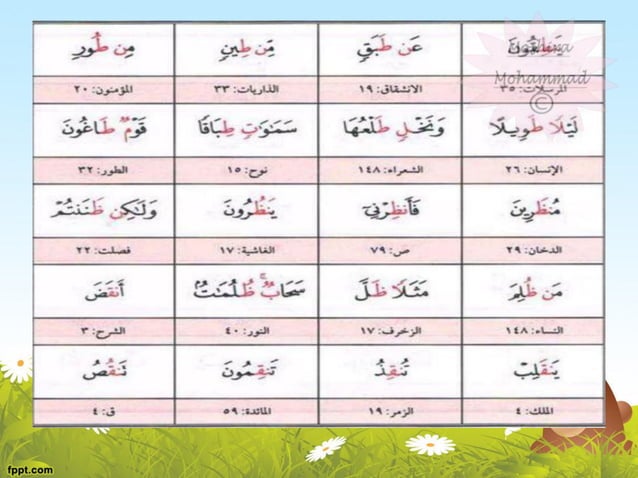 يَنطِقُونَ عَن طَبَقٍ مِّن طِينٍ مِن طُورِ
المرسلات: ٣٥ الانشقاق: ١٩ الذاريات: ٣٣ المؤمنون: ٢٠
لَيْلًا طَوِيلًا وَنَخْلٍ طَلْعُهَا سَمَٰوَٰتٍ طِبَاقًا قَوْمٌ طَاغُونَ
الإنسان: ٢٦ الشعراء: ١٤٨ نوح: ١٥ الطور: ٣٢
مُنظَرِينَ فَأَنظِرْنِي يَنظُرُونَ وَلَٰكِن ظَنَنتُمْ
الدخان: ٢٩ ص: ٧٩ الغاشية: ١٧ فصلت: ٢٢
مَن ظُلِمَ مَثَلًا ظَلَّ سَحَابٌ ۚ ظُلُمَٰتٌۢ أَنقَضَ
النساء: ١٤٨ الزخرف: ١٧ النور: ٤٠ الشرح: ٣
يَنقَلِبْ تُنقِذُ تَنقِمُونَ تَنقُصُ
الملك: ٤ الزمر: ١٩ المائدة: ٥٩ ق: ٤
Mohammad
©
fppt.com